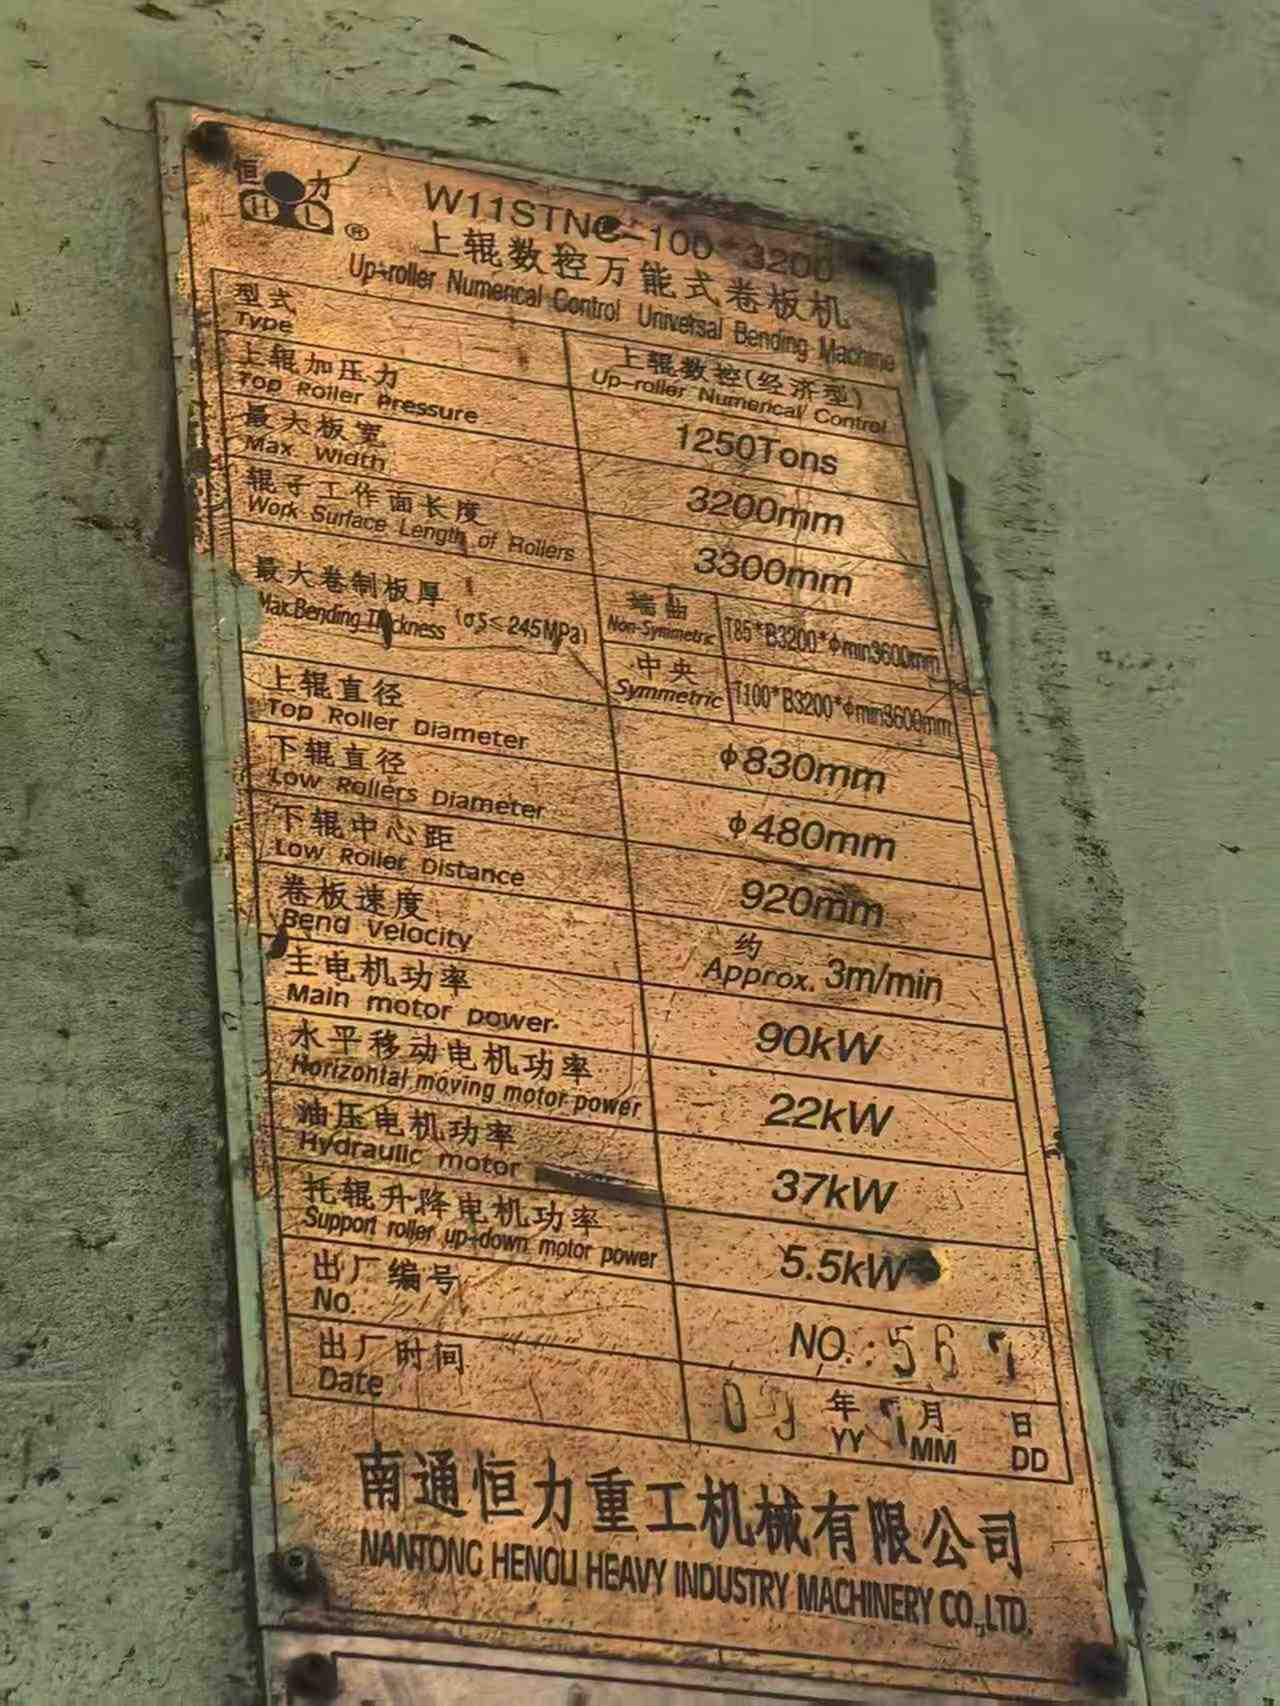 恒力
HL ®
W11STNC-100*3200
上辊数控万能式卷板机
Up-roller Numerical Control Universal Bending Machine
型式
Type
上辊数控(经济型)
Up-roller Numerical Control
上辊加压力
Top Roller Pressure
1250Tons
最大板宽
Max Width
3200mm
辊子工作面长度
Work Surface Length of Rollers
3300mm
最大卷制板厚
Max.Bending Thickness (σs≤245MPa)
端曲
Non-Symmetric
T85*B3200*φmin3600mm
中央
Symmetric
T100*B3200*φmin3600mm
上辊直径
Top Roller Diameter
φ830mm
下辊直径
Low Rollers Diameter
φ480mm
下辊中心距
Low Roller Distance
920mm
卷板速度
Bend Velocity
约
Approx. 3m/min
主电机功率
Main motor power
90kW
水平移动电机功率
Horizontal moving motor power
22kW
油压电机功率
Hydraulic motor
37kW
托辊升降电机功率
Support roller up-down motor power
5.5kW
出厂编号
No.
NO.: 567
出厂时间
Date
年 月 日
YY MM DD
南通恒力重工机械有限公司
NANTONG HENGLI HEAVY INDUSTRY MACHINERY CO.,LTD.